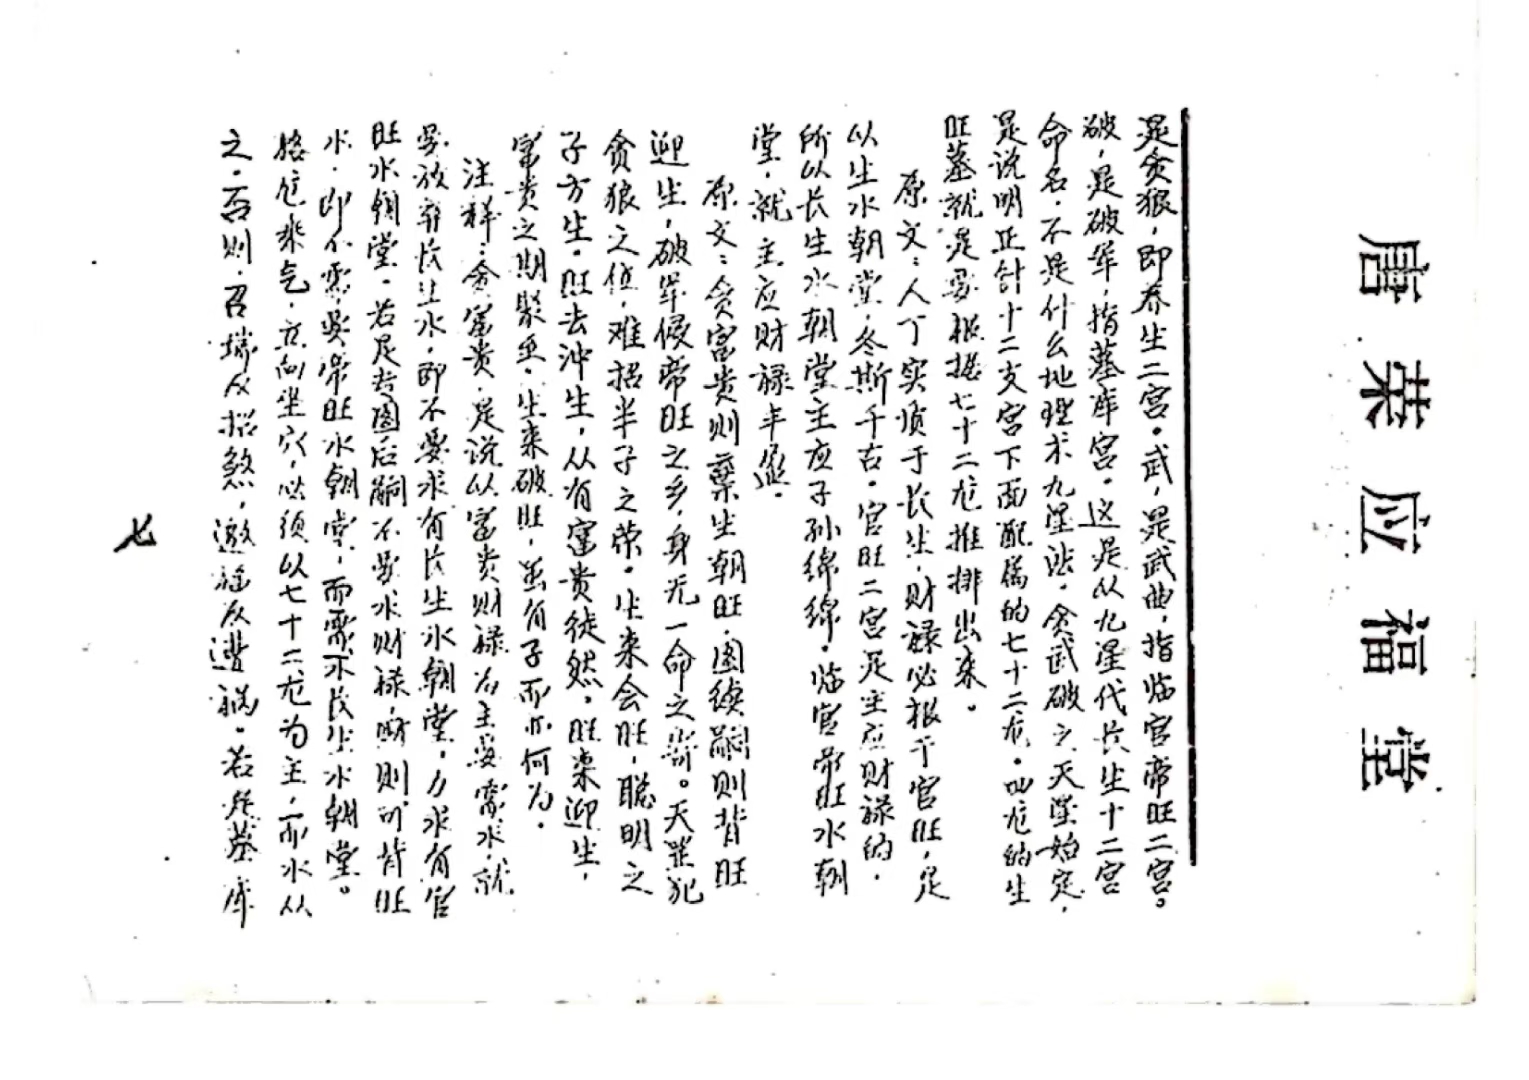 唐荣应福堂
是贪狼，即养生二宫。武，是武曲，指临官帝旺二宫。
破，是破军，指墓库宫。这是从九星代长生十二宫
命名，不是什么地理术九星法。贪武破之天罡始定，
是说明正针十二支宫下面配属的七十二龙。四龙的生
旺墓就是要根据七十二龙推排出来。
原文：人丁实质于长生，财禄必根于官旺，是
以生水朝堂，冬斯千古。官旺二宫是主应财禄的，
所以长生水朝堂主应子孙绵绵。临官帝旺水朝
堂，就主应财禄丰盈。
原文：贪富贵则弃生朝旺，图续嗣则背旺
迎生，破军侵帝旺之乡，身无一命之寄。天罡犯
贪狼之位，难招半子之荣。生来会旺，聪明之
子方生。旺去冲生，从有富贵徒然。旺来迎生，
富贵之期聚至。生来破旺，虽有子而亦何为。
注释：贪富贵，是说以富贵财禄为主要需求，就
要放弃长生水，即不要求有长生水朝堂，力求有官
旺水朝堂。若是专图后嗣不要求财禄，则可背旺
水，即不需要帝旺水朝堂，而需求长生水朝堂。
格龙乘气，立向坐穴，必须以七十二龙为主，而水从
之。否则，召瑞反招煞，邀福反遭祸。若是墓库
七